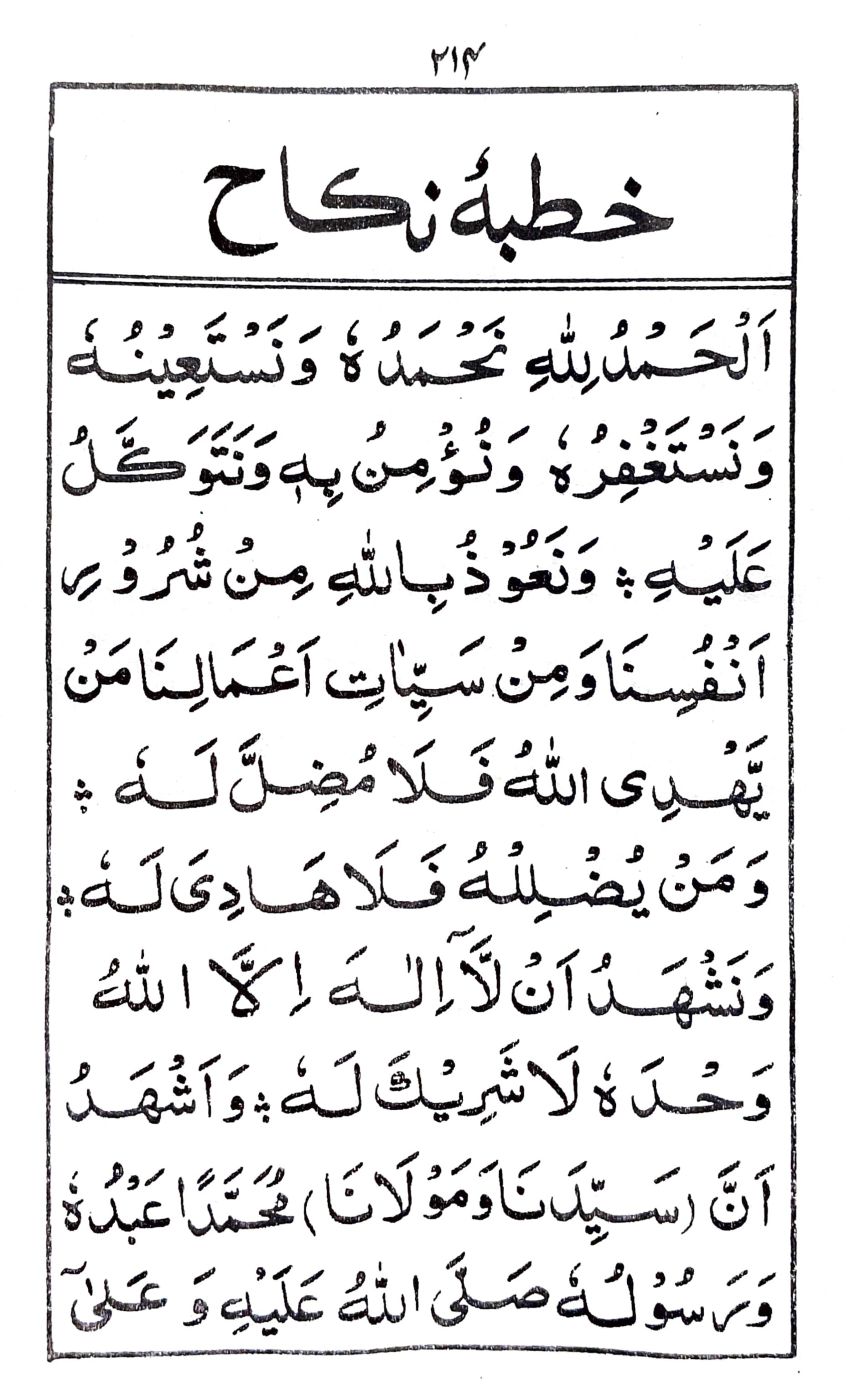 ۲۱۴
خطبۂ نکاح
اَلْحَمْدُ لِلّٰهِ نَحْمَدُهٗ وَنَسْتَعِیْنُهٗ
وَنَسْتَغْفِرُهٗ وَنُؤْمِنُ بِهٖ وَنَتَوَكَّلُ
عَلَیْهِ ؞ وَنَعُوْذُ بِاللّٰهِ مِنْ شُرُوْرِ
اَنْفُسِنَا وَمِنْ سَیِّاٰتِ اَعْمَالِنَا مَنْ
یَّهْدِی اللّٰهُ فَلَا مُضِلَّ لَهٗ ؞
وَمَنْ یُضْلِلْهُ فَلَا هَادِیَ لَهٗ ؞
وَنَشْهَدُ اَنْ لَّآ اِلٰهَ اِلَّا اللّٰهُ
وَحْدَهٗ لَا شَرِیْكَ لَهٗ ؞ وَاَشْهَدُ
اَنَّ (سَیِّدَنَا وَمَوْلَانَا) مُحَمَّدًا عَبْدُهٗ
وَرَسُوْلُهٗ صَلَّی اللّٰهُ عَلَیْهِ وَ عَلٰیٓ